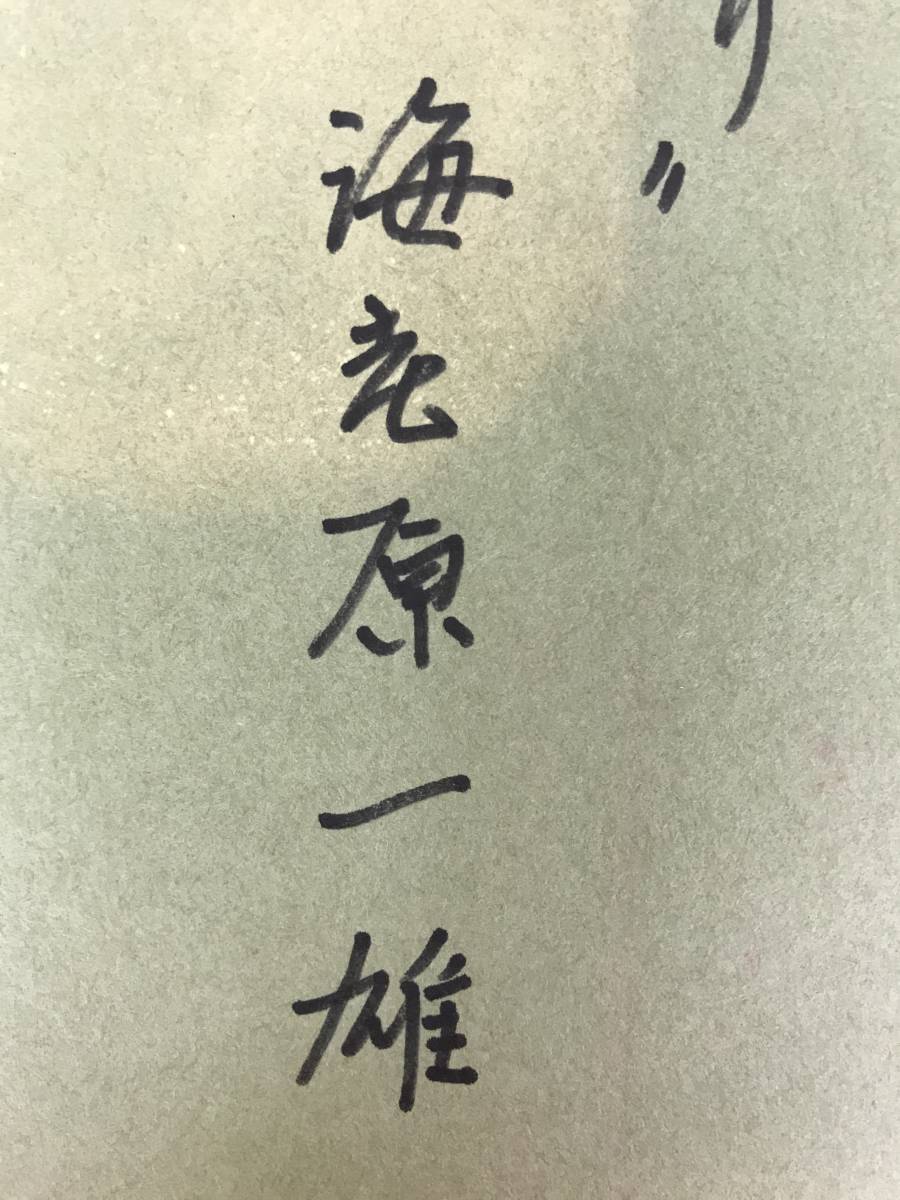 り〟
海老原一雄